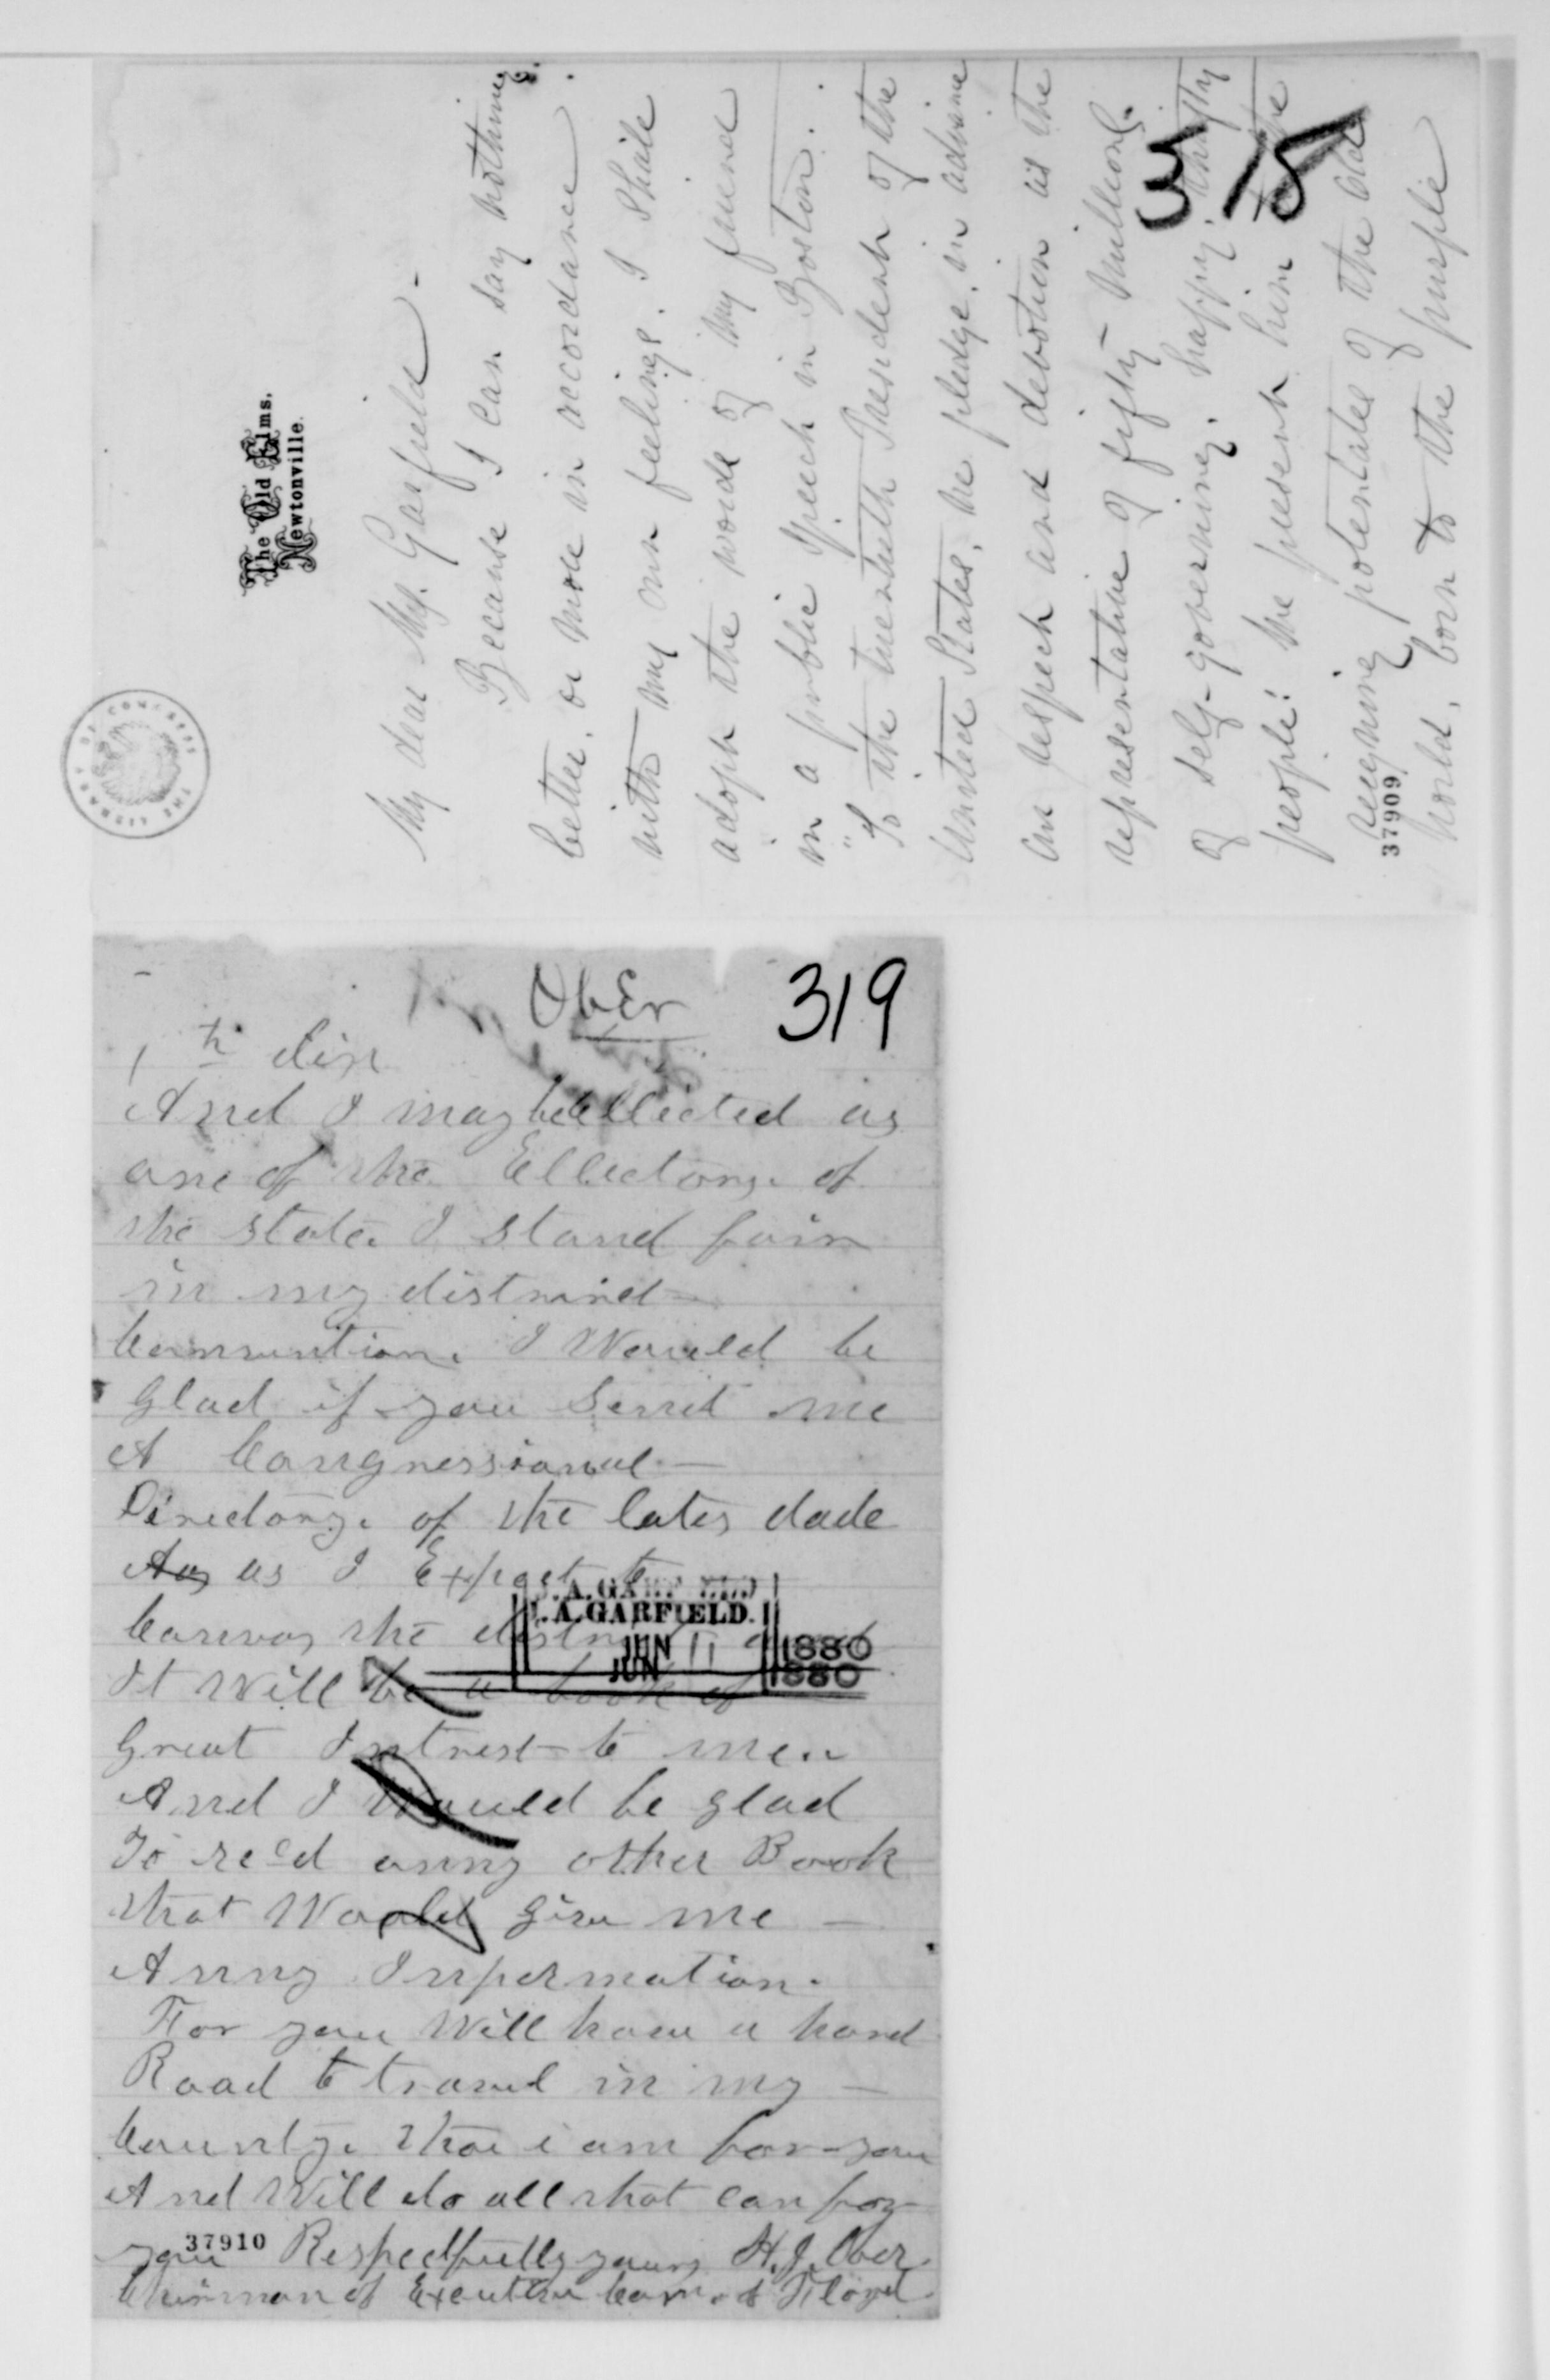 The Old Elms,
Newtonville.
318
My dear Mrs. Garfield -
Because I can say nothing
better, or more in accordance
with my own feelings. I shall
adopt the words of my friend
in a public speech in Boston.
"To the twentieth President of the
United States, we pledge, in advance
our respect and devotion as the
representative of fifty millions.
of self-governing, happy, thrifty
people: we present him to the
reigning potentates of the old
world, born to the purple
37909
LIBRARY OF CONGRESS
Ober 319
th dis
And I may be ellected as
one of the Ellectors. of
the state. I stand fair
in my district
Convention. I Would be
Glad if you Send me
A Congressional —
Directory. of the lates dade
As as I Expect to
Canvas the district
It Will be a book of
Great Intrest to me..
And I Would be glad
To recd anny other Book
that Would give me —
Anny Information.
For you Will have a hard
Road to travel in my —
County. tho i am for you
And Will do all that can for
you Respectfully yours H. J. Ober.
Chairman of Executive Com. of Floyd.
J. A. GARFIELD.
JUN 11 1880
JUN 1880
37910